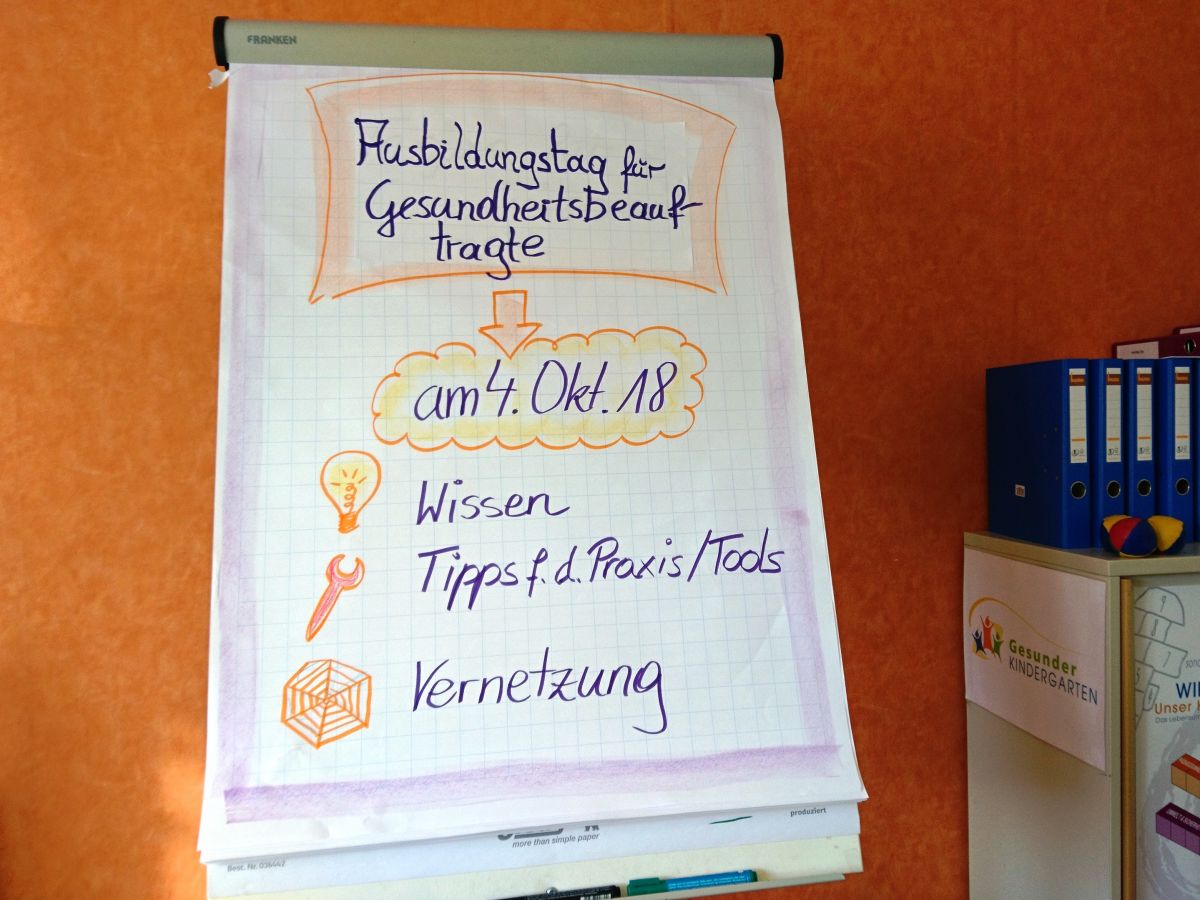 FRANKEN
Ausbildungstag für
Gesundheitsbeauf-
tragte
am 4. Okt. 18
Wissen
Tipps f. d. Praxis/Tools
Vernetzung
produziert
more than simple paper
Best. Nr. 036442
Gesunder
KINDERGARTEN
WI
Unser K